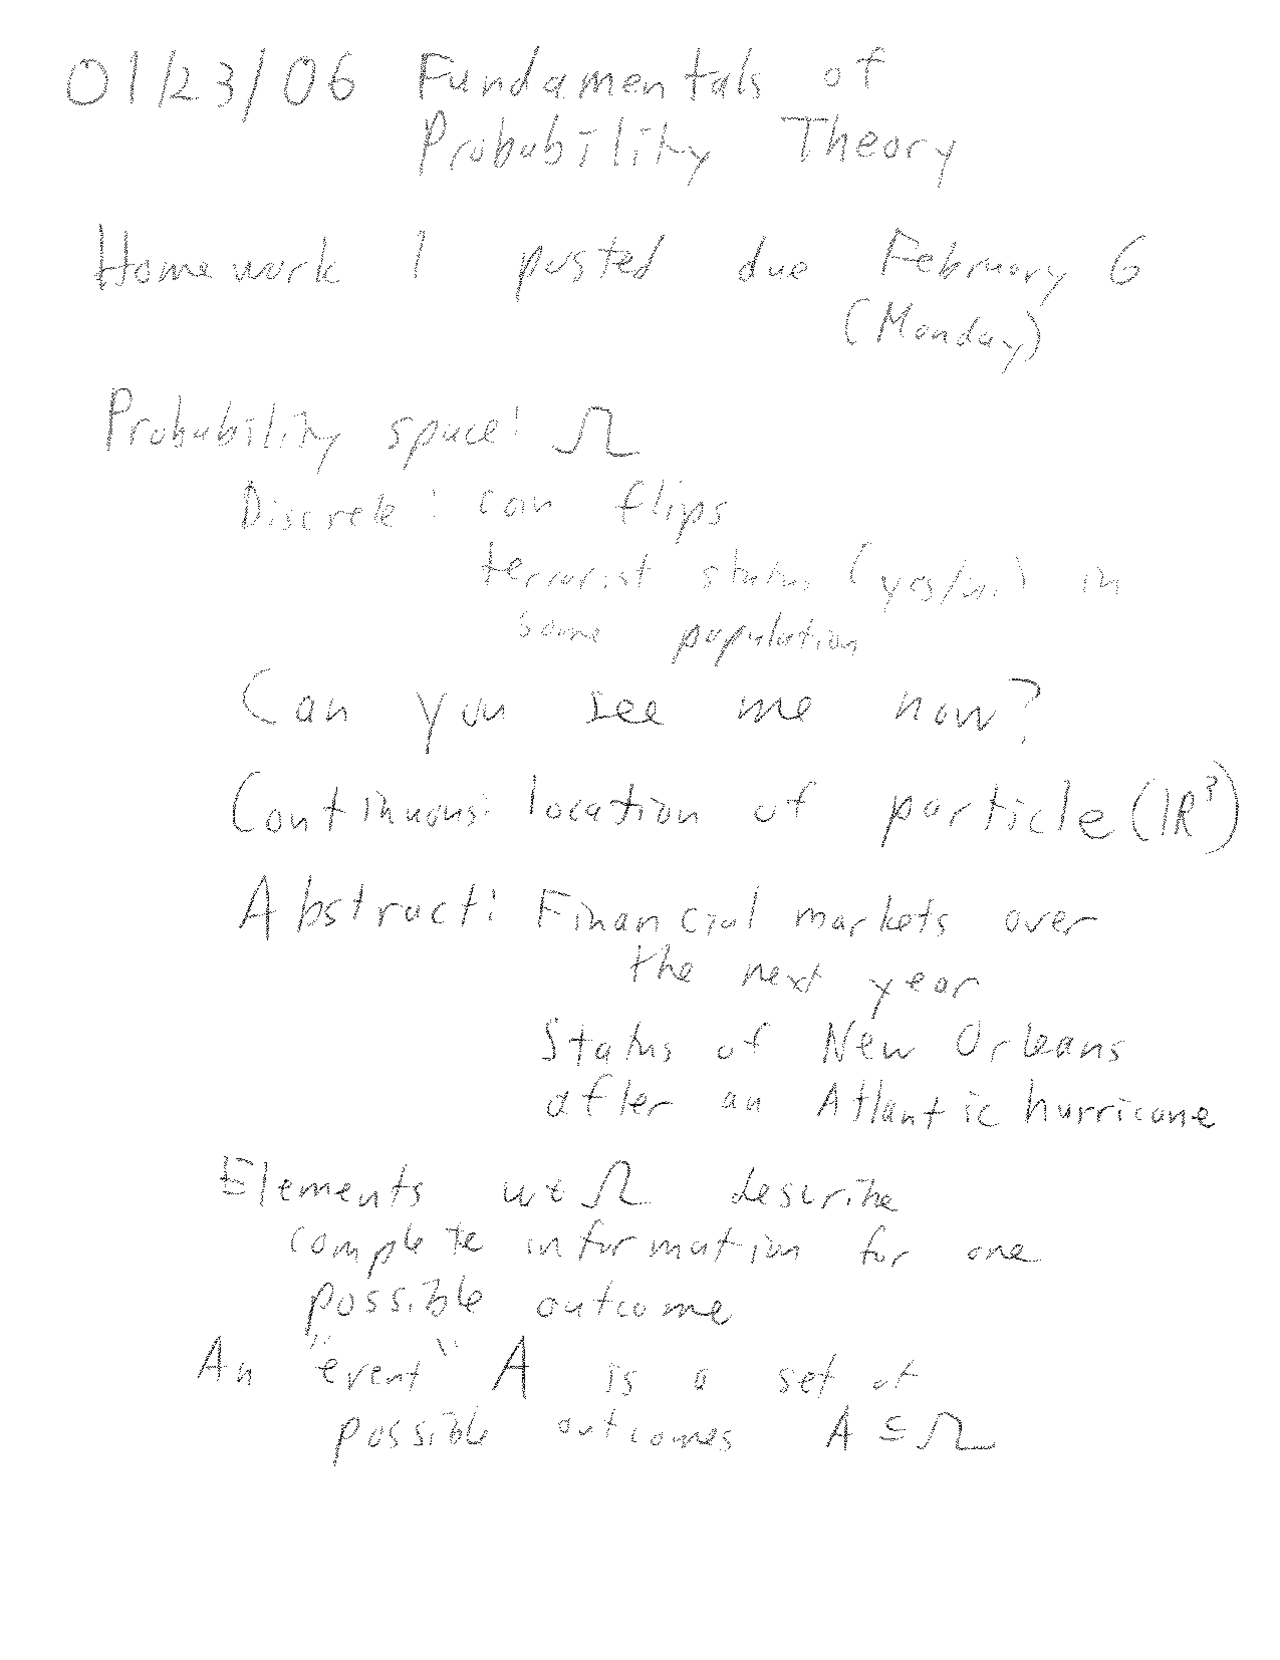 01/23/06 Fundamentals of
Probability Theory
Homework 1 posted due February 6
(Monday)
Probability space: Ω
Discrete: coin flips
terrorist status (yes/no) in
some population
Can you see me now?
Continuous: location of particle (ℝ³)
Abstract: Financial markets over
the next year
Status of New Orleans
after an Atlantic hurricane
Elements ω∈Ω describe
complete information for one
possible outcome
An "event" A is a set of
possible outcomes A ⊆ Ω